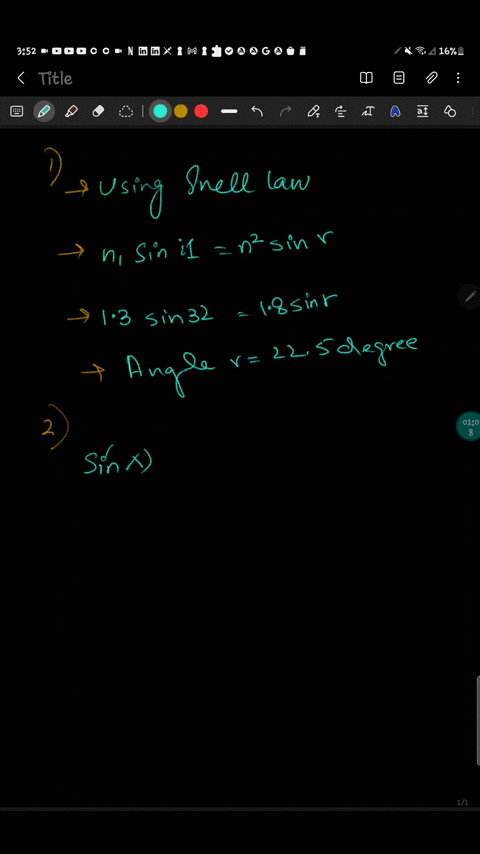 3:52
16%
Title
1)
→ Using Snell law
→ n₁ sin i1 = n² sin r
→ 1.3 sin 32 = 1.8 sin r
→ Angle r = 22.5 degree
01:0
8
2)
Sin x)
1/1